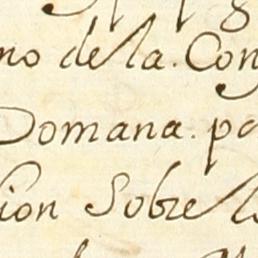 no de la. Con
Domana. po
ion Sobre l